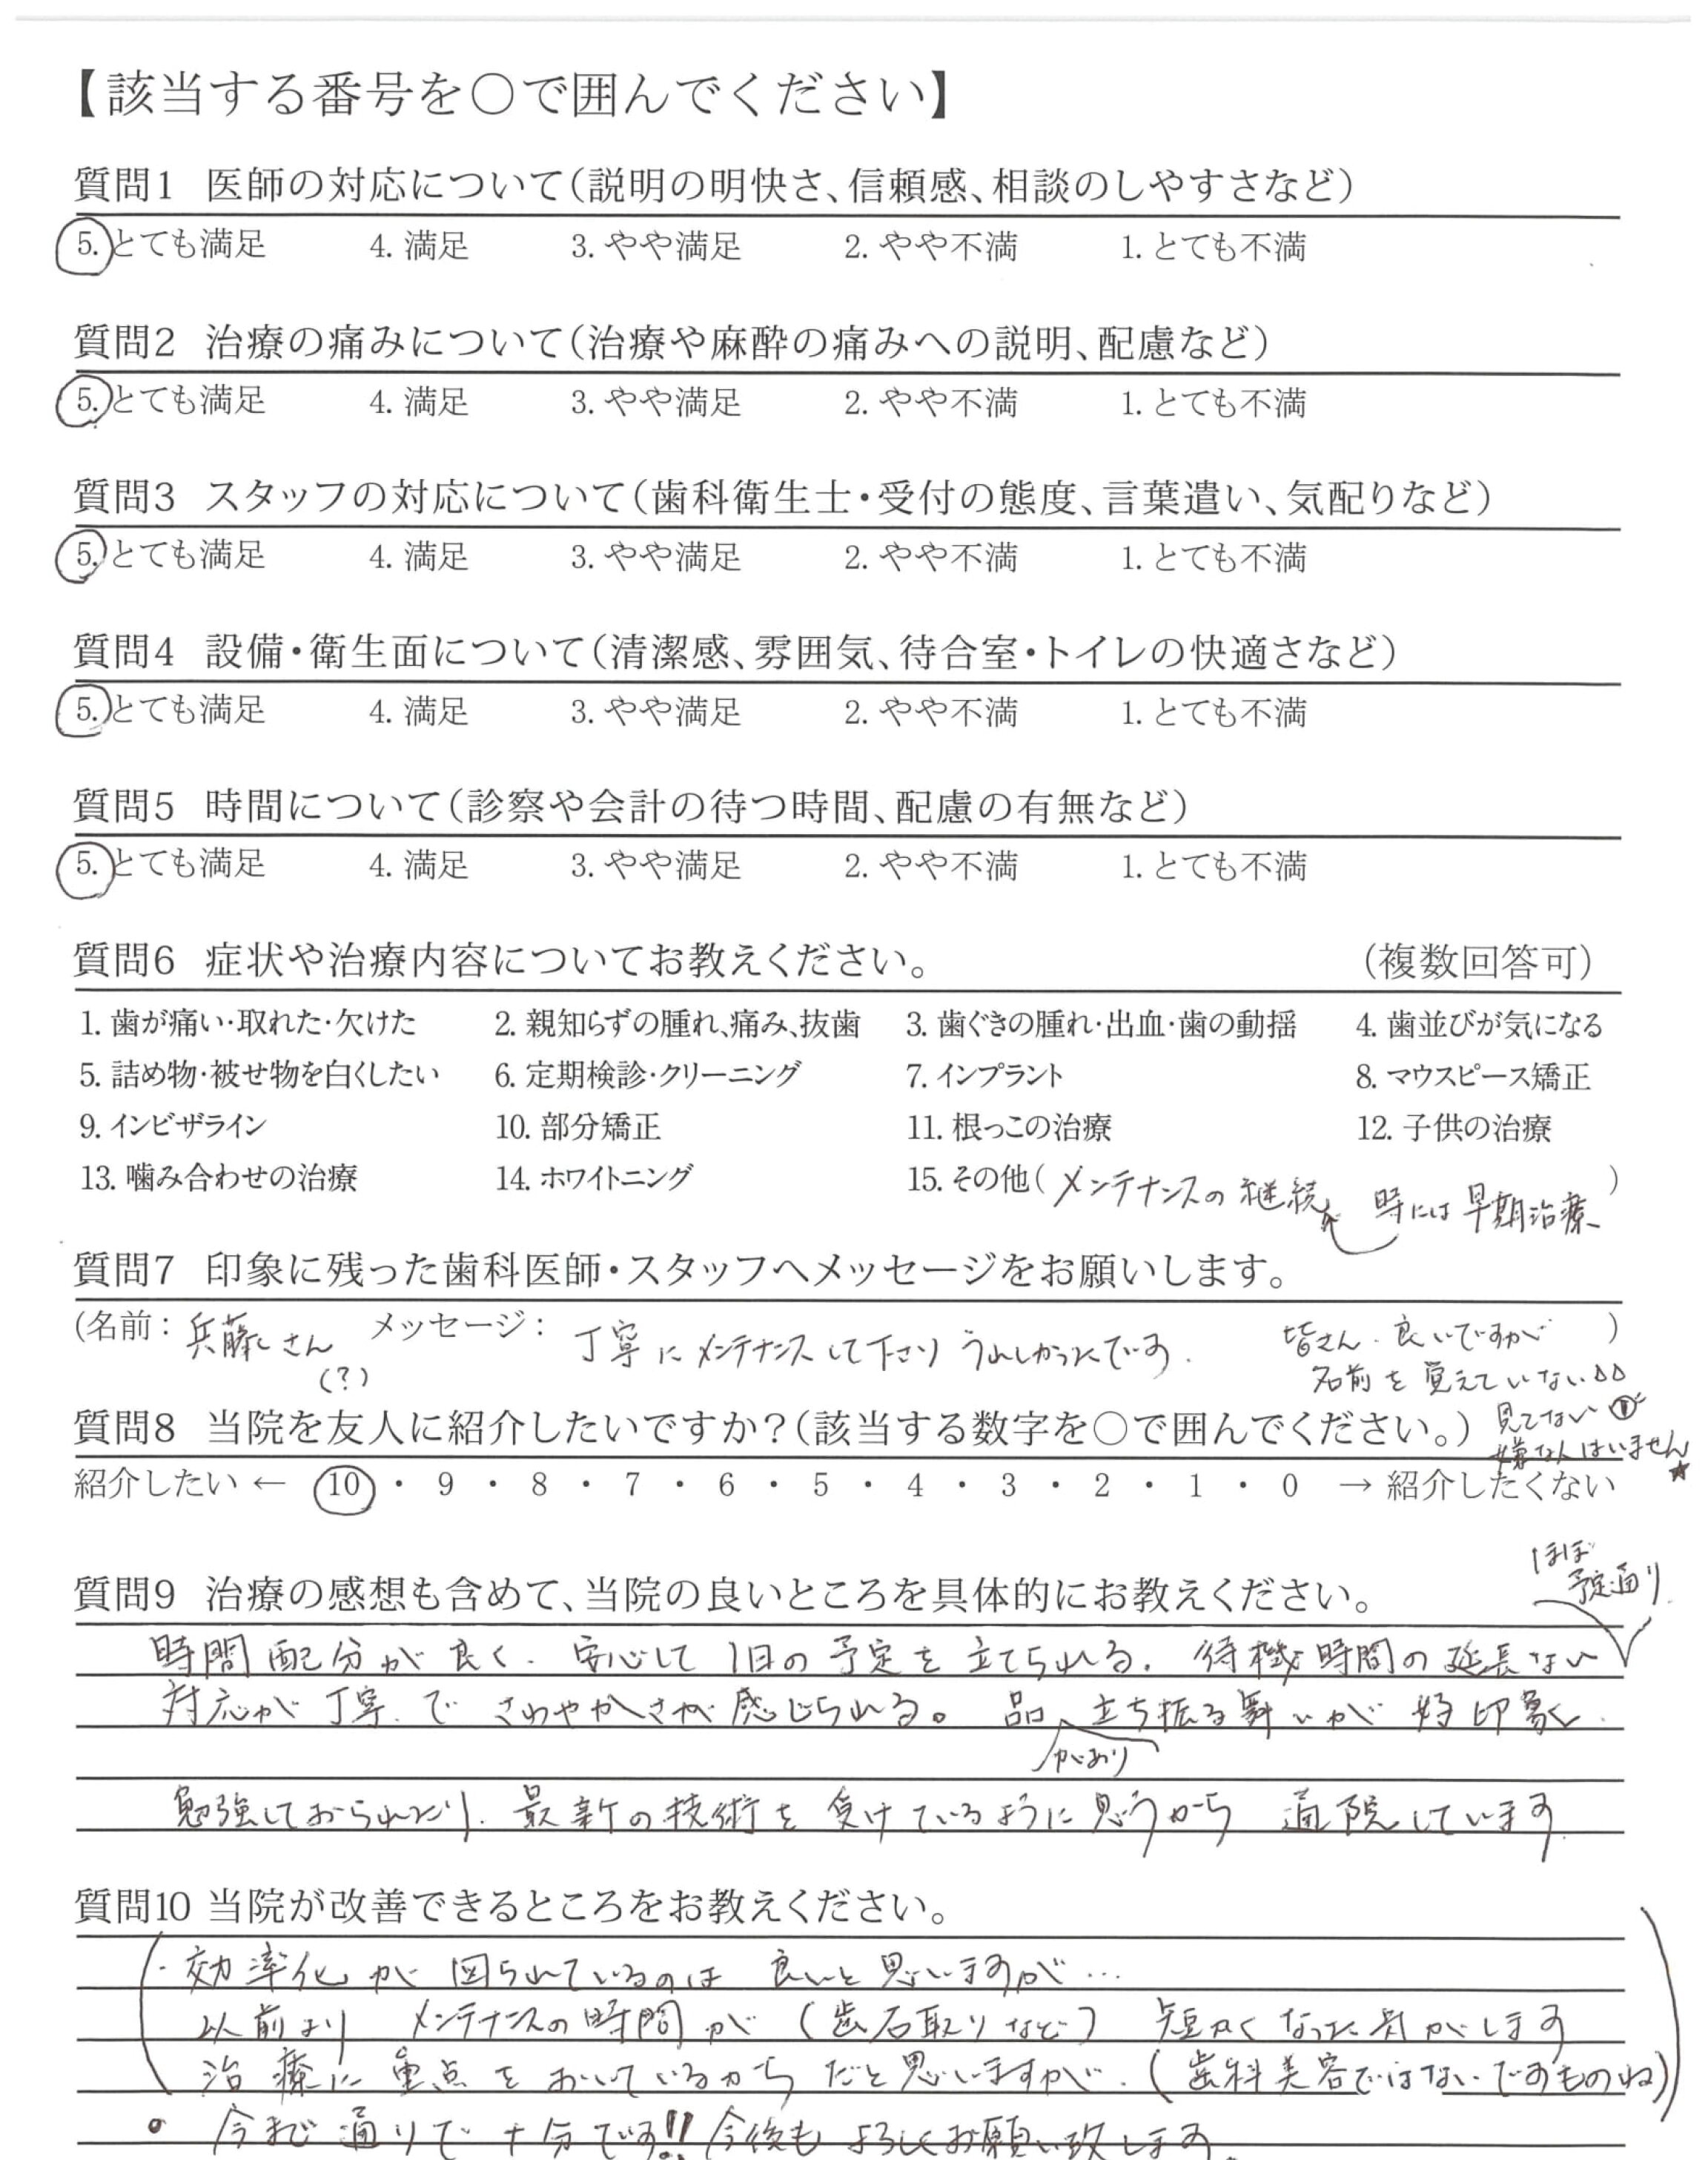 【該当する番号を○で囲んでください】
質問1 医師の対応について（説明の明快さ、信頼感、相談のしやすさなど）
5. とても満足 4. 満足 3. やや満足 2. やや不満 1. とても不満
質問2 治療の痛みについて（治療や麻酔の痛みへの説明、配慮など）
5. とても満足 4. 満足 3. やや満足 2. やや不満 1. とても不満
質問3 スタッフの対応について（歯科衛生士・受付の態度、言葉遣い、気配りなど）
5. とても満足 4. 満足 3. やや満足 2. やや不満 1. とても不満
質問4 設備・衛生面について（清潔感、雰囲気、待合室・トイレの快適さなど）
5. とても満足 4. 満足 3. やや満足 2. やや不満 1. とても不満
質問5 時間について（診察や会計の待つ時間、配慮の有無など）
5. とても満足 4. 満足 3. やや満足 2. やや不満 1. とても不満
質問6 症状や治療内容についてお教えください。 （複数回答可）
1. 歯が痛い・取れた・欠けた 2. 親知らずの腫れ、痛み、抜歯 3. 歯ぐきの腫れ・出血・歯の動揺 4. 歯並びが気になる
5. 詰め物・被せ物を白くしたい 6. 定期検診・クリーニング 7. インプラント 8. マウスピース矯正
9. インビザライン 10. 部分矯正 11. 根っこの治療 12. 子供の治療
13. 噛み合わせの治療 14. ホワイトニング 15. その他（メンテナンスの継続 時には早期治療）
質問7 印象に残った歯科医師・スタッフへメッセージをお願いします。
（名前：兵藤さん メッセージ： 丁寧にメンテナンスして下さりうれしかったです. 皆さん、良いですが ）
(?) 名前を覚えていない
質問8 当院を友人に紹介したいですか？（該当する数字を○で囲んでください。） 見てない
嫌な人はいません★
紹介したい ← 10 ・ 9 ・ 8 ・ 7 ・ 6 ・ 5 ・ 4 ・ 3 ・ 2 ・ 1 ・ 0 → 紹介したくない
ほぼ
予定通り
質問9 治療の感想も含めて、当院の良いところを具体的にお教えください。
時間配分が良く、安心して1日の予定を立てられる. 待機時間の延長ない
対応が丁寧.で さわやかさが感じられる。品 立ち振る舞いが好印象.
があり
勉強しておられたり、最新の技術を受けているように思うから 通院しています.
質問10 当院が改善できるところをお教えください。
・効率化が図られているのは 良いと思いますが…
以前より メンテナンスの時間が（歯石取りなど）短かくなった気がします
治療に重点をおいているからだと思いますが.（歯科美容ではないですものね）
• 今まで通りで十分です!! 今後もよろしくお願い致します.